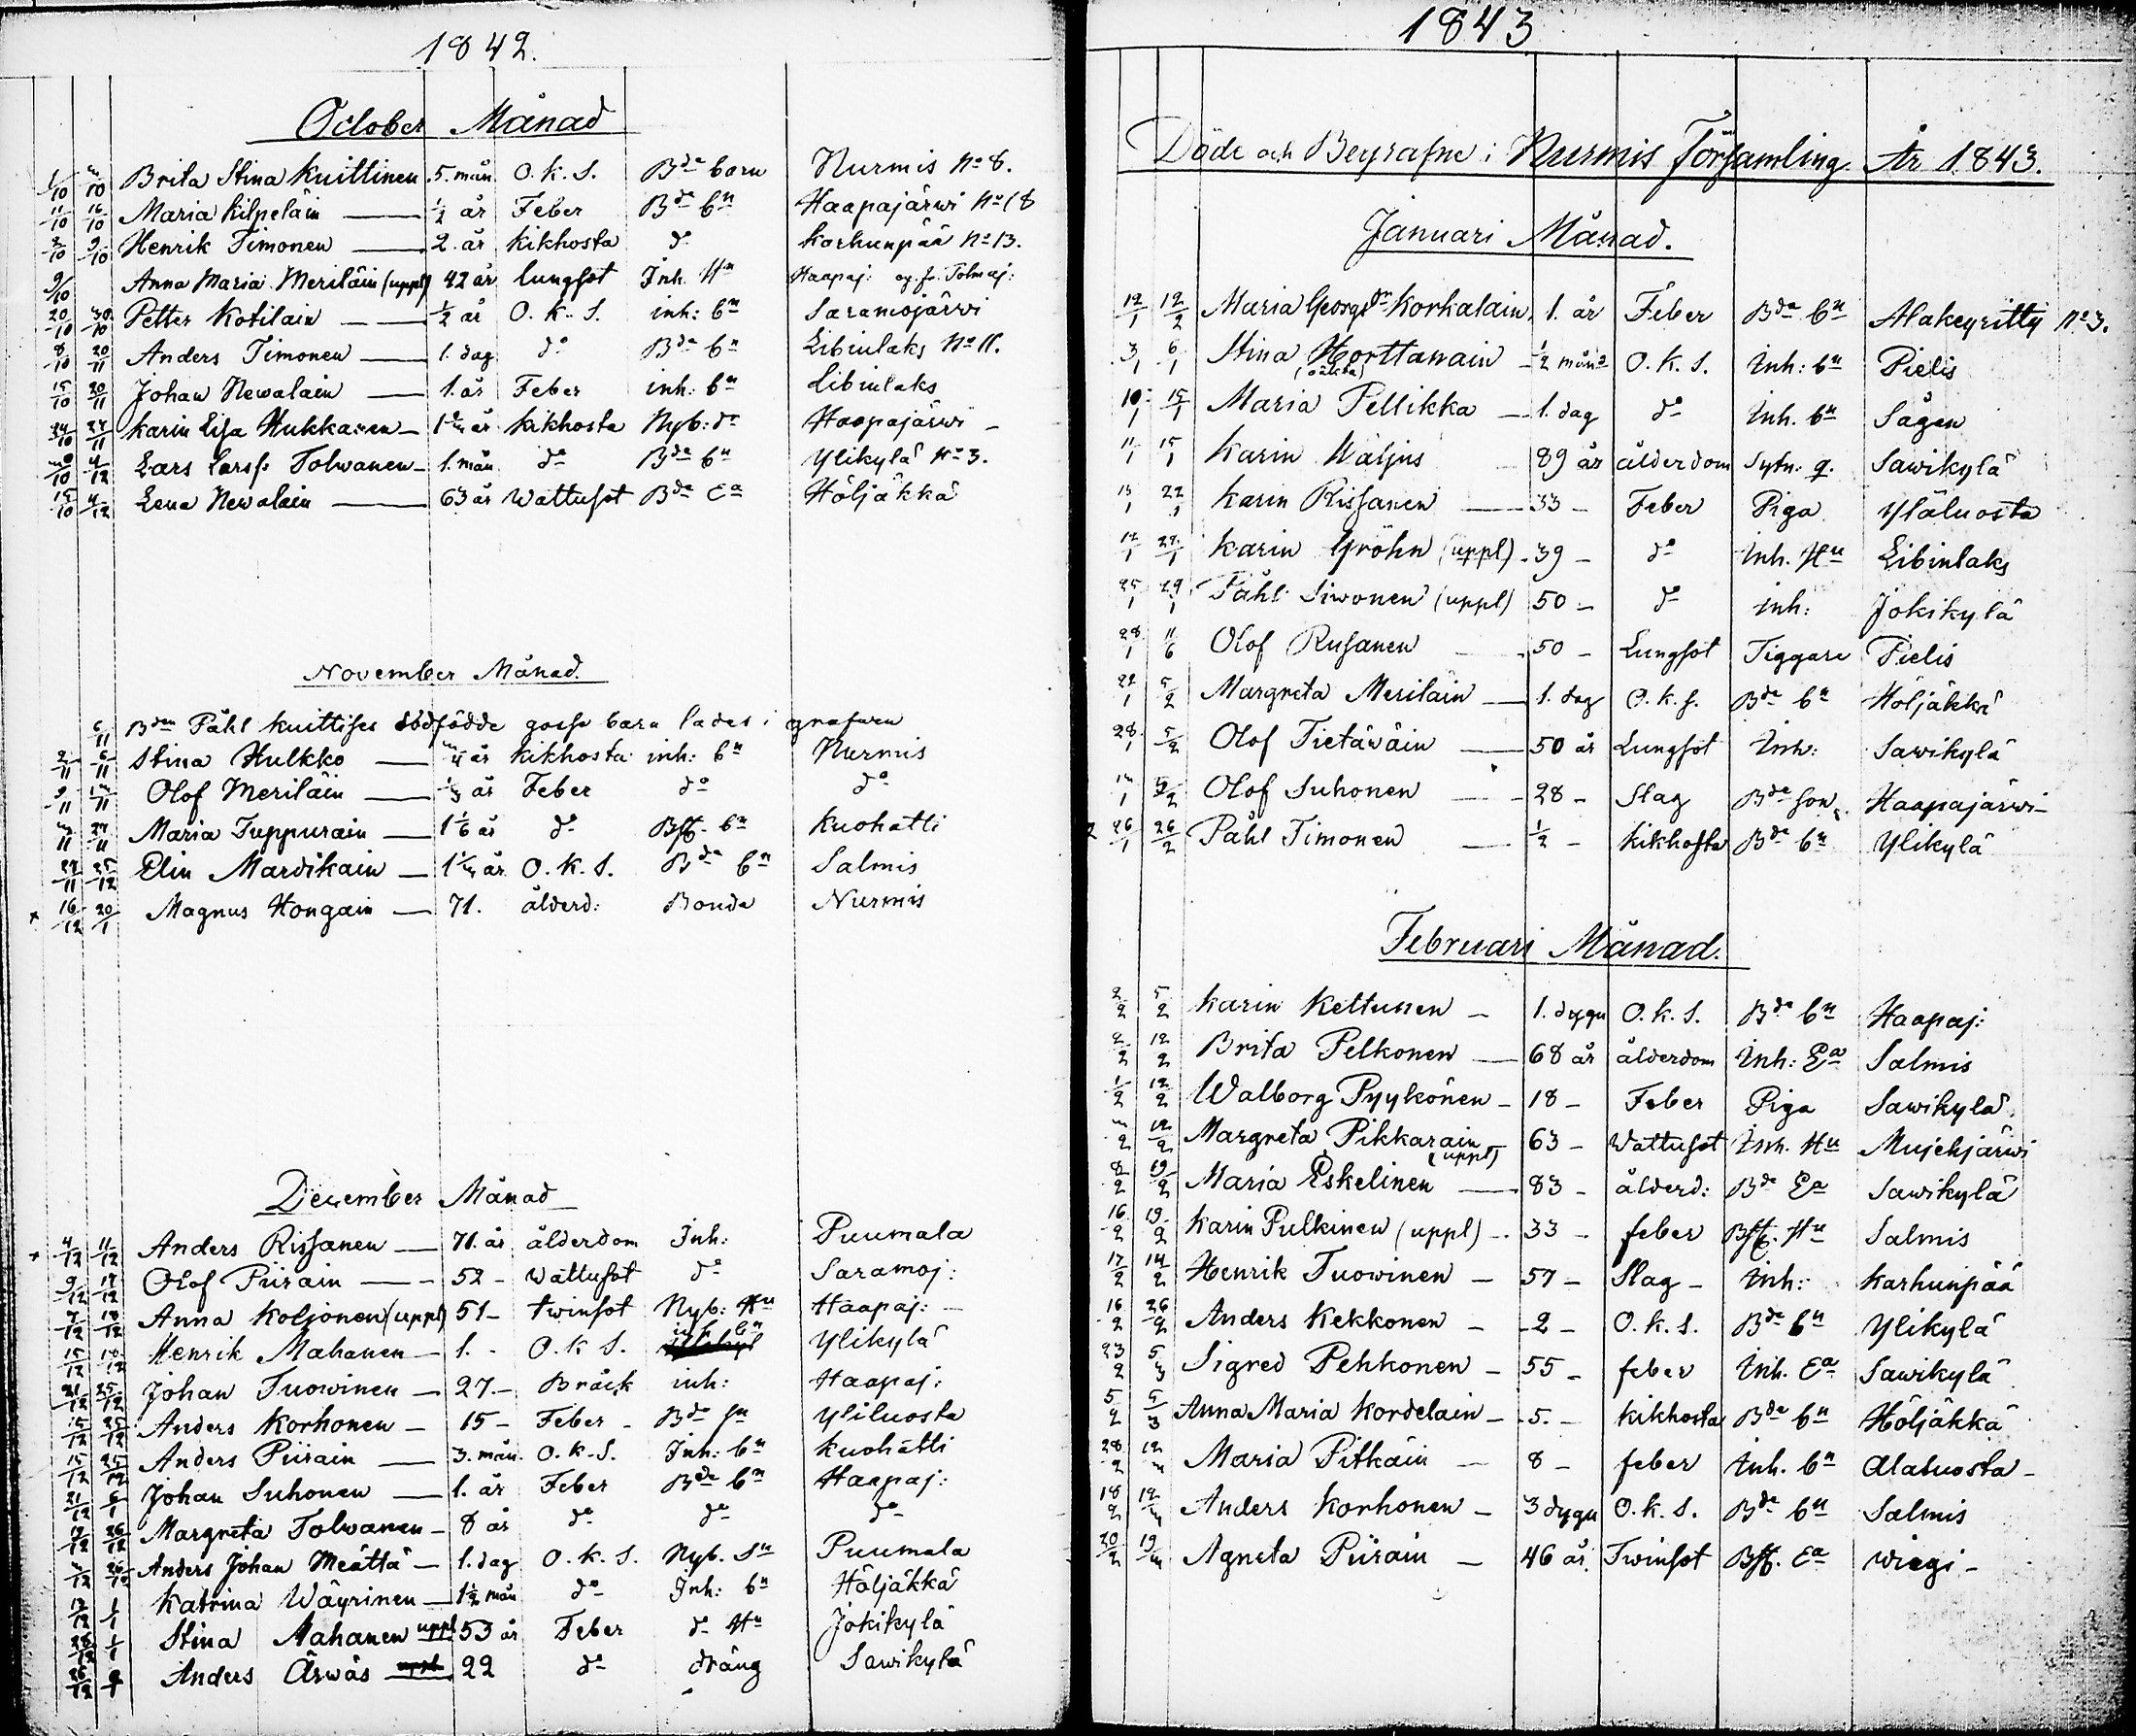 1842.
October Månad
1/10 3/10 Brita Stina Kuittinen 5. mån O.k.S. Bde barn Nurmis No 8.
11/10 16/10 Maria Kilpeläin — ½ år Feber Bde bn Haapajärwi No 18
2/10 9/10 Henrik Timonen — 2. år Kikhosta do Karhunpää No 13.
9/10 Anna Maria Meriläin (uppl) 42 år lungsot Inh. Hu Haapaj:
20/10 30/10 Petter Kotilain — ½ år O.k.S. inh: bn Saramojärvi
8/10 20/11 Anders Timonen — 1. dag do Bde bn Libinlaks No 11.
15/10 20/11 Johan Newalain — 1. år Feber inh: bn Libinlaks
24/10 27/11 Karin Lisa Hukkanen — 1¼ år Kikhosta Nyb: do Haapajärwi —
4/12 Lars Larss: Tolwanen — 1. mån do Bde bn Ylikylä No 3.
15/10 4/12 Lena Newalain — 63 år Wattusot Bde Ea Höljäkkä
November Månad.
6/11 Bden Påhl Kuittises dödfödde gosse barn lades i grafven
2/11 6/11 Stina Hulkko — ¾ år Kikhosta inh: bn Nurmis
9/11 13/11 Olof Meriläin — ⅓ år Feber do do
3/11 27/11 Maria Tuppurain — 1⅙ år do Bff. bn Kuohatti
27/11 25/12 Elin Mardikain — 1¼ år O.k.S. Bde bn Salmis
x 16/12 20/1 Magnus Hongain — 71. ålderd: Bonde Nurmis
December Månad
x 4/12 11/12 Anders Rissanen — 71. år ålderdom Inh: Puumala
9/12 17/12 Olof Piirain — 52 — Wattusot do Saramoj:
7/12 18/12 Anna Koljonen (uppl) 51 — twinsot Nyb: Hu Haapaj: —
15/12 18/12 Henrik Mahanen — 1. - O.k.S. inh bn Ylikylä
21/12 25/12 Johan Tuowinen — 27 — Bråck inh: Haapaj:
15/12 25/12 Anders Korhonen — 15 — Feber — Bde sn Yliluosta
15/12 25/12 Anders Piirain — 3. mån. O.k.S. Inh: bn Kuohatti
21/12 6/1 Johan Suhonen — 1. år Feber Bde bn Haapaj:
19/12 26/12 Margreta Tolwanen — 8 år do do do
3/12 26/12 Anders Johan Meättä — 1. dag O.k.S. Nyb. Sn Puumala
12/12 1/1 Katrina Wäyrinen — 1½ mån do Inh: bn Höljäkkä
28/12 1/1 Stina Nahanen uppl 53 år Feber do Hu Jokikylä
26/12 Anders Ärwäs uppl 22 do dräng Sawikylä
1843
Döde och Begrafne i Nurmis Församling År 1843.
Januari Månad.
12/1 12/2 Maria Georgsdr Korkalain 1. år Feber Bde bn Alakeyritty No 3.
3/1 6/1 Stina Horttanain (oäkta) — ½ månd O.k.S. Inh: bn Pielis
10/1 15/1 Maria Pellikka — 1. dag do Inh. bn Sågen
11/1 15/1 Karin Wäljus 89 år ålderdom Sytn: q. Sawikylä
13/1 22/1 Karin Rissanen — 33 — Feber Piga Yläluosta
12/1 22/1 Karin Gröhn (uppl) — 39 — do Inh. Hu Libinlaks
25/1 29/1 Påhl Siwonen (uppl) 50 — do inh: Jokikylä
28/1 11/6 Olof Rusanen — 50 — Lungsot Tiggare Pielis
22/1 5/2 Margreta Meriläin — 1. dag O.k.S. Bde bn Höljäkkä
28/1 5/2 Olof Tietäwäin — 50 år Lungsot Inh: Sawikylä
13/1 5/2 Olof Suhonen — 28 — Slag Bde son Haapajärwi —
26/1 26/2 Påhl Timonen — ½ — Kikhosta Bde bn Ylikylä
Februari Månad.
2/2 5/2 Karin Kettunen — 1. dygn O.k.S. Bde bn Haapaj:
2/2 12/2 Brita Pelkonen — 68 år ålderdom Inh: Ea Salmis
1/2 12/2 Walborg Pyykönen — 18 — Feber Piga Sawikylä
3/2 12/2 Margreta Pikkarain (uppl) 63 — Wattusot Inh. Hu Mujehjärwi
8/2 19/2 Maria Eskelinen — 83 — ålderd: Bde Ea Sawikylä
16/2 19/2 Karin Pulkinen (uppl) — 33 — feber Bff. Hu Salmis
17/2 14/2 Henrik Tuowinen — 57 — Slag — Inh: Karhunpää
16/2 26/2 Anders Kekkonen — 2 — O.k.S. Bde bn Ylikylä
23/2 5/3 Sigred Pehkonen — 55 — feber Inh. Ea Sawikylä
5/2 5/3 Anna Maria Kordelain — 5. — Kikhosta Bde bn Höljäkkä
28/2 12/3 Maria Pitkäin — 8 — feber Inh. bn Alaluosta —
18/2 12/3 Anders Korhonen — 3 dygn O.k.S. Bde bn Salmis
20/2 19/3 Agneta Piirain — 46 år. Twinsot Bff. Ea Wiegi —